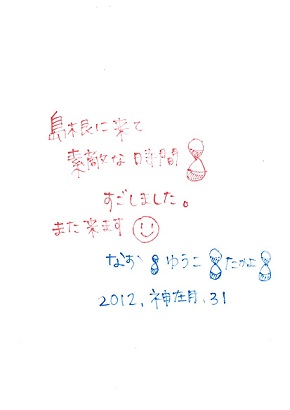 島根に来て
素敵な時間
すごしました。
また来ます
なおゆうこたかよ
2012,神在月,31